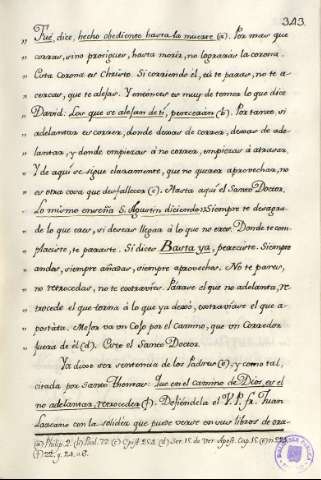 343.
„ Fué, dice, hecho obediente hasta la muerte (a). Por mas que
„ corras, sino prosigues, hasta morir, no lograrás la corona.
„ Esta Corona es Christo. Si corriendo él, tú te paras, no te a-
„ cercas, que te alejas. Y entonces es muy de temer lo que dice
„ David: Los que se alejan de ti, perecerán (b). Por tanto, si
„ adelantar es correr, donde dexas de correr, dexas de ade-
„ lantar, y donde empiezas á no correr, empiezas á atrasar.
„ Y de aquí se sigue claramente, que no querer aprovechar, no
„ es otra cosa que desfallecer (c). Hasta aquí el Santo Doctor.
„ Lo mismo enseña S. Agustin diciendo: Siempre te desagra-
„ de lo que eres, si deseas llegar á lo que no eres. Donde te com-
„ placiste, te paraste. Si dices Basta ya, pereciste. Siempre
„ andes, siempre añadas, siempre aproveches. No te pares,
„ no retrocedas, no te extravies. Párase el que no adelanta, re-
„ trocede el que torna á lo que ya dexó, extravíase el que a-
„ postáta. Mejor va un Cojo por el camino, que un Corredor
„ fuera de él (d). Este el Santo Doctor.
Ya dixo ser sentencia de los Padres (e), y como tal,
citada por Santo Thomas: que en el camino de Dios, es el
no adelantar, retroceder (f). Defiéndela el V. P. fr. Juan
Lozcano con la solidez que puede verse en sus libros de ora-
(a) Philip. 2. (b) Psal. 72. (c) Epist. 253. (d) Ser. 15. de Ver. Apost. Cap. 15. (e) n.
(f) 22. q. 24. a. 6.